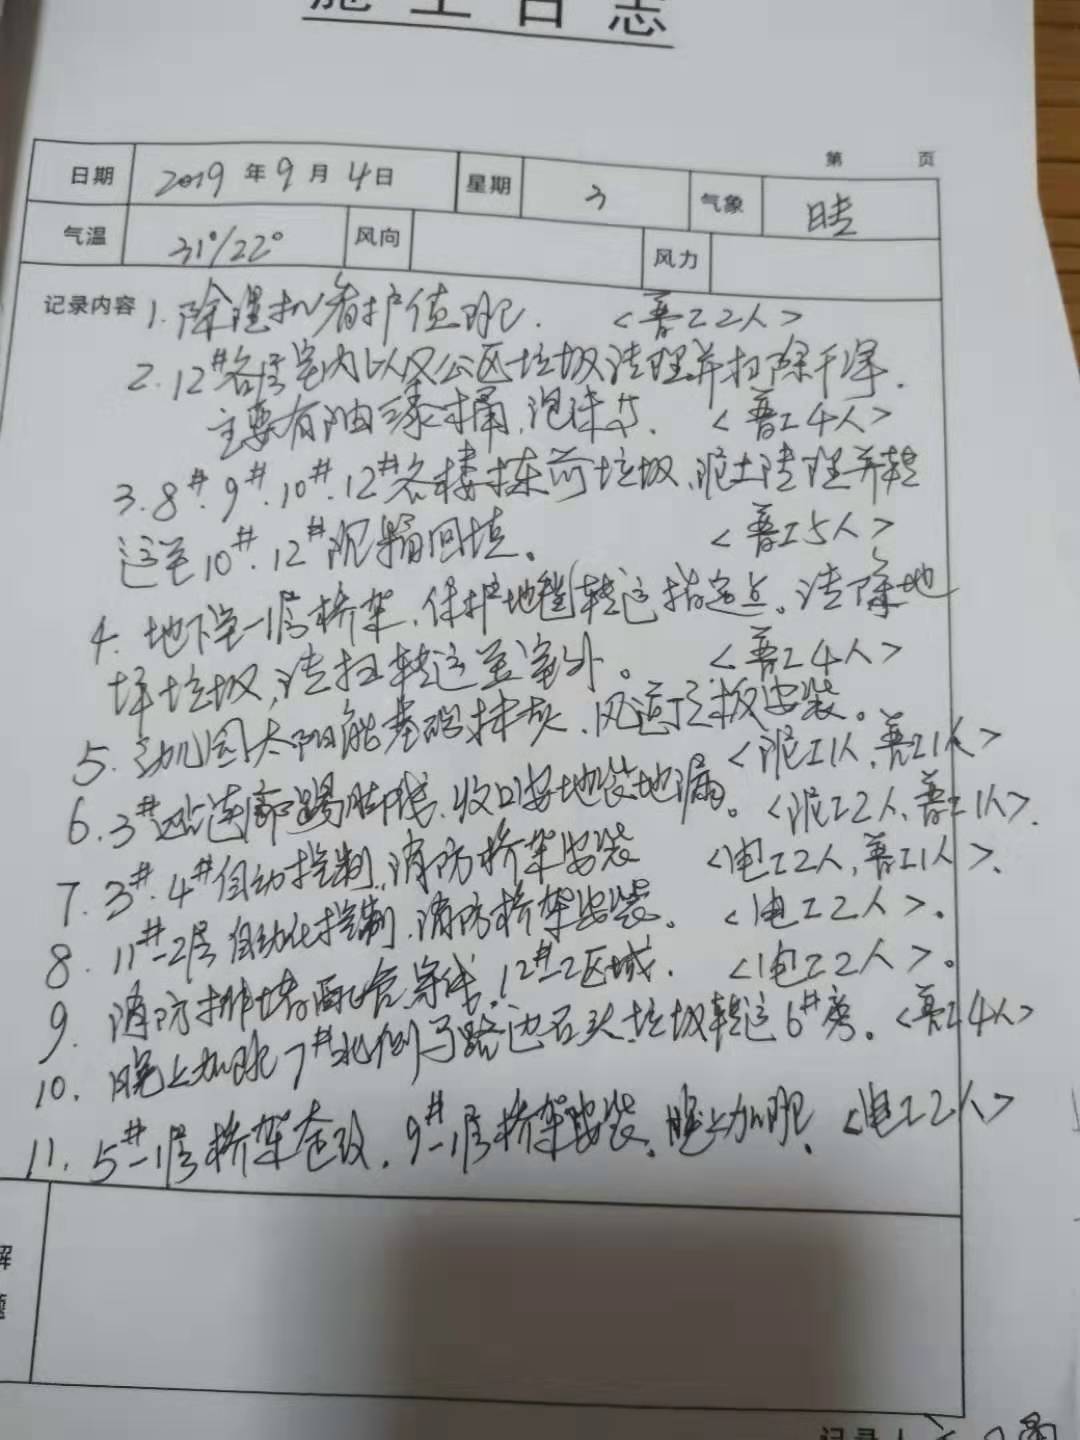 施工日志
第 页
日期 2019年9月4日 星期 3 气象 晴
气温 31°/22° 风向 风力
记录内容 1.除湿机看护值班. <普工2人>
2.12#各层室内以及公区垃圾清理并扫除干净.
主要有油漆桶,泡沫等. <普工4人>
3.8#.9#.10#.12#各楼栋前垃圾、泥土清理并转
运至10#.12#沉降回填。 <普工5人>
4.地下室一层桥架、保护地毯转运指定点。清除地
坪垃圾,清扫转运至室外。 <普工4人>
5.幼儿园太阳能基础抹灰、风道顶板安装。
<泥工1人,普工1人>
6.3#连廊踢脚线、收口安地装地漏。<泥工2人、普工1人>.
7.3#.4#自动控制、消防桥架安装 <电工2人,普工1人>.
8.11#-2层自动化控制、消防桥架安装。 <电工2人>。
9.消防排堵配合穿线。12#-2区域. <电工2人>。
10.晚上加班7#北侧马路边石头、垃圾转运6#旁。<普工4人>
11.5#-1层桥架整改.9#-1层桥架安装。晚上加班. <电工2人>
解
题
记录人